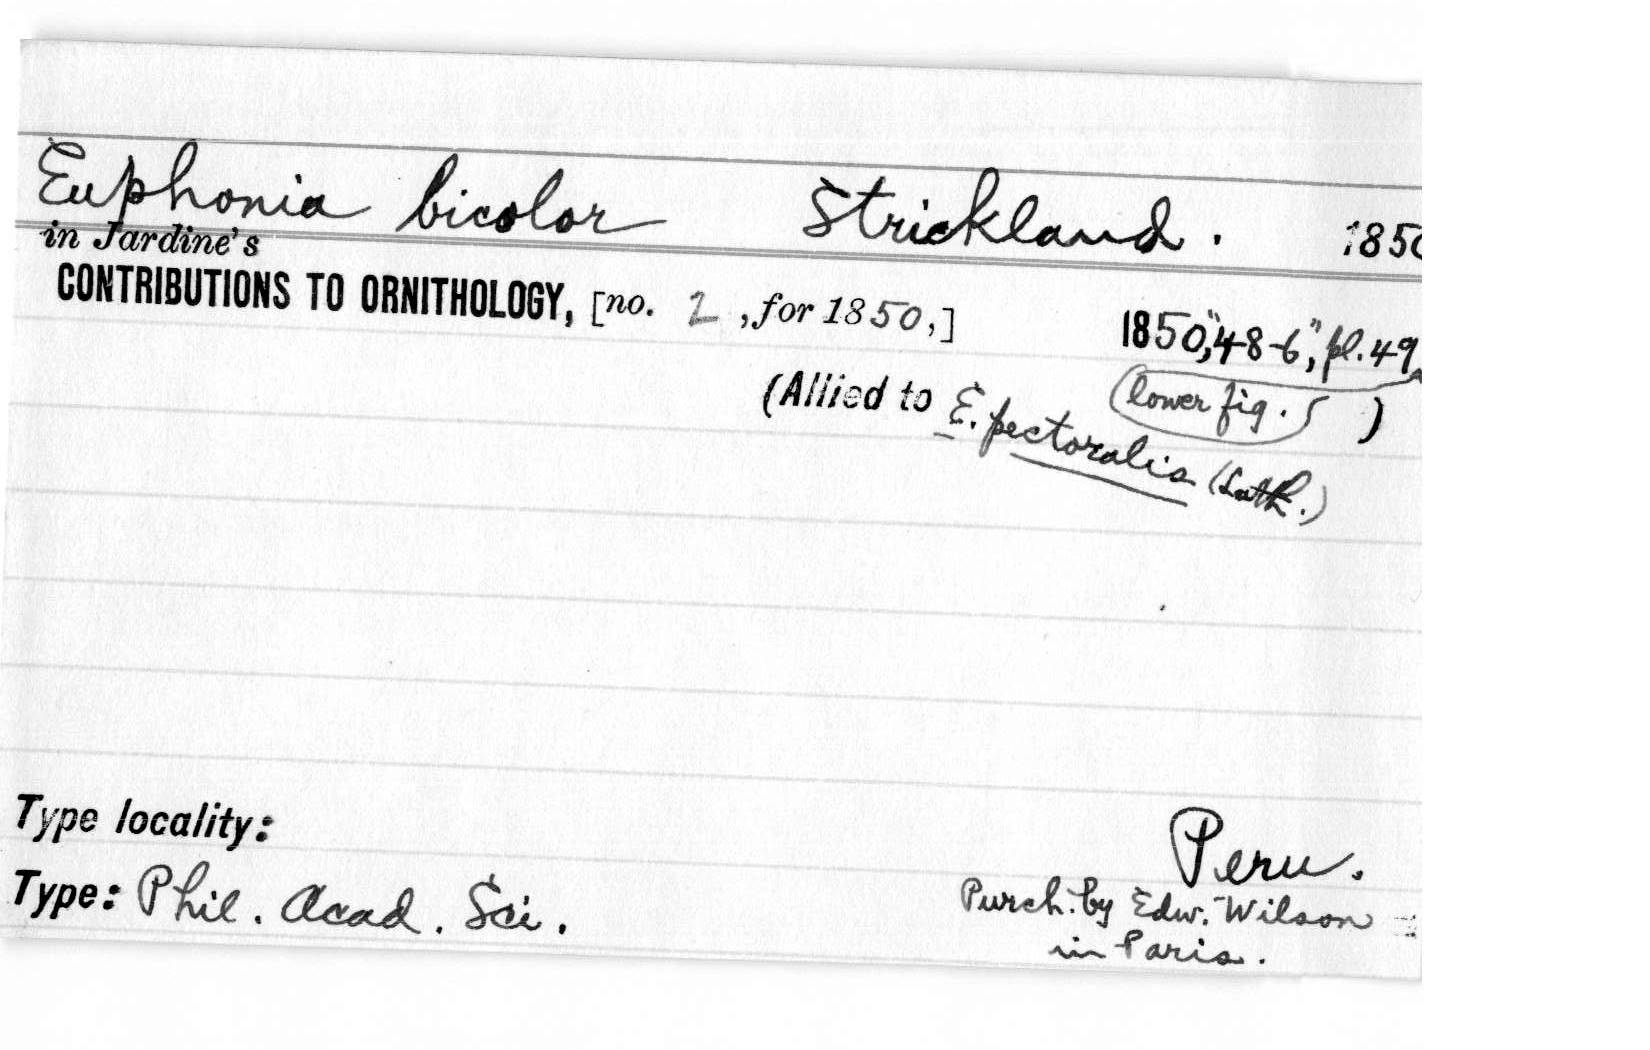 Euphonia bicolor Strickland. 185
in Jardine's
CONTRIBUTIONS TO ORNITHOLOGY, [no. 2, for 1850,] 1850, "48-6", pl. 49
(lower fig.)
(Allied to E. pectoralis (Lath.) )
Type locality: Peru.
Type: Phil. Acad. Sci. Purch. by Edw. Wilson
in Paris.